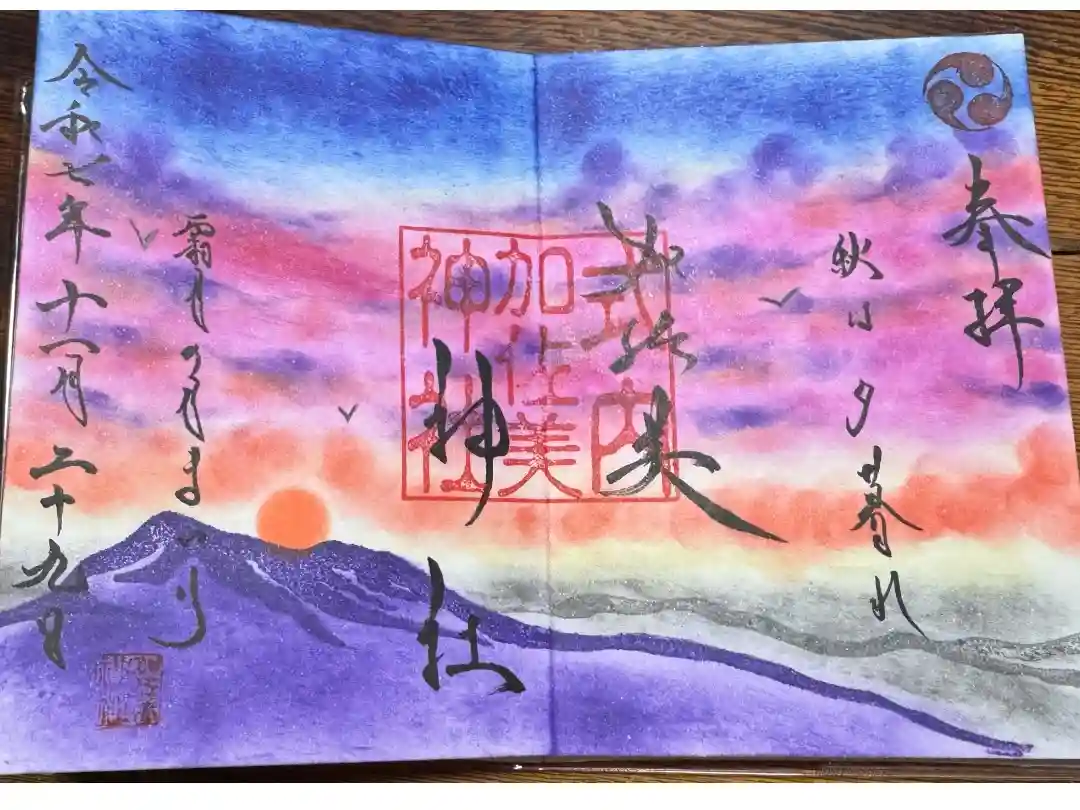 奉拝
秋は夕暮れ
加佐美
神社
式内
加佐美
神社
霜月の月まいり
令和七年十一月二十九日